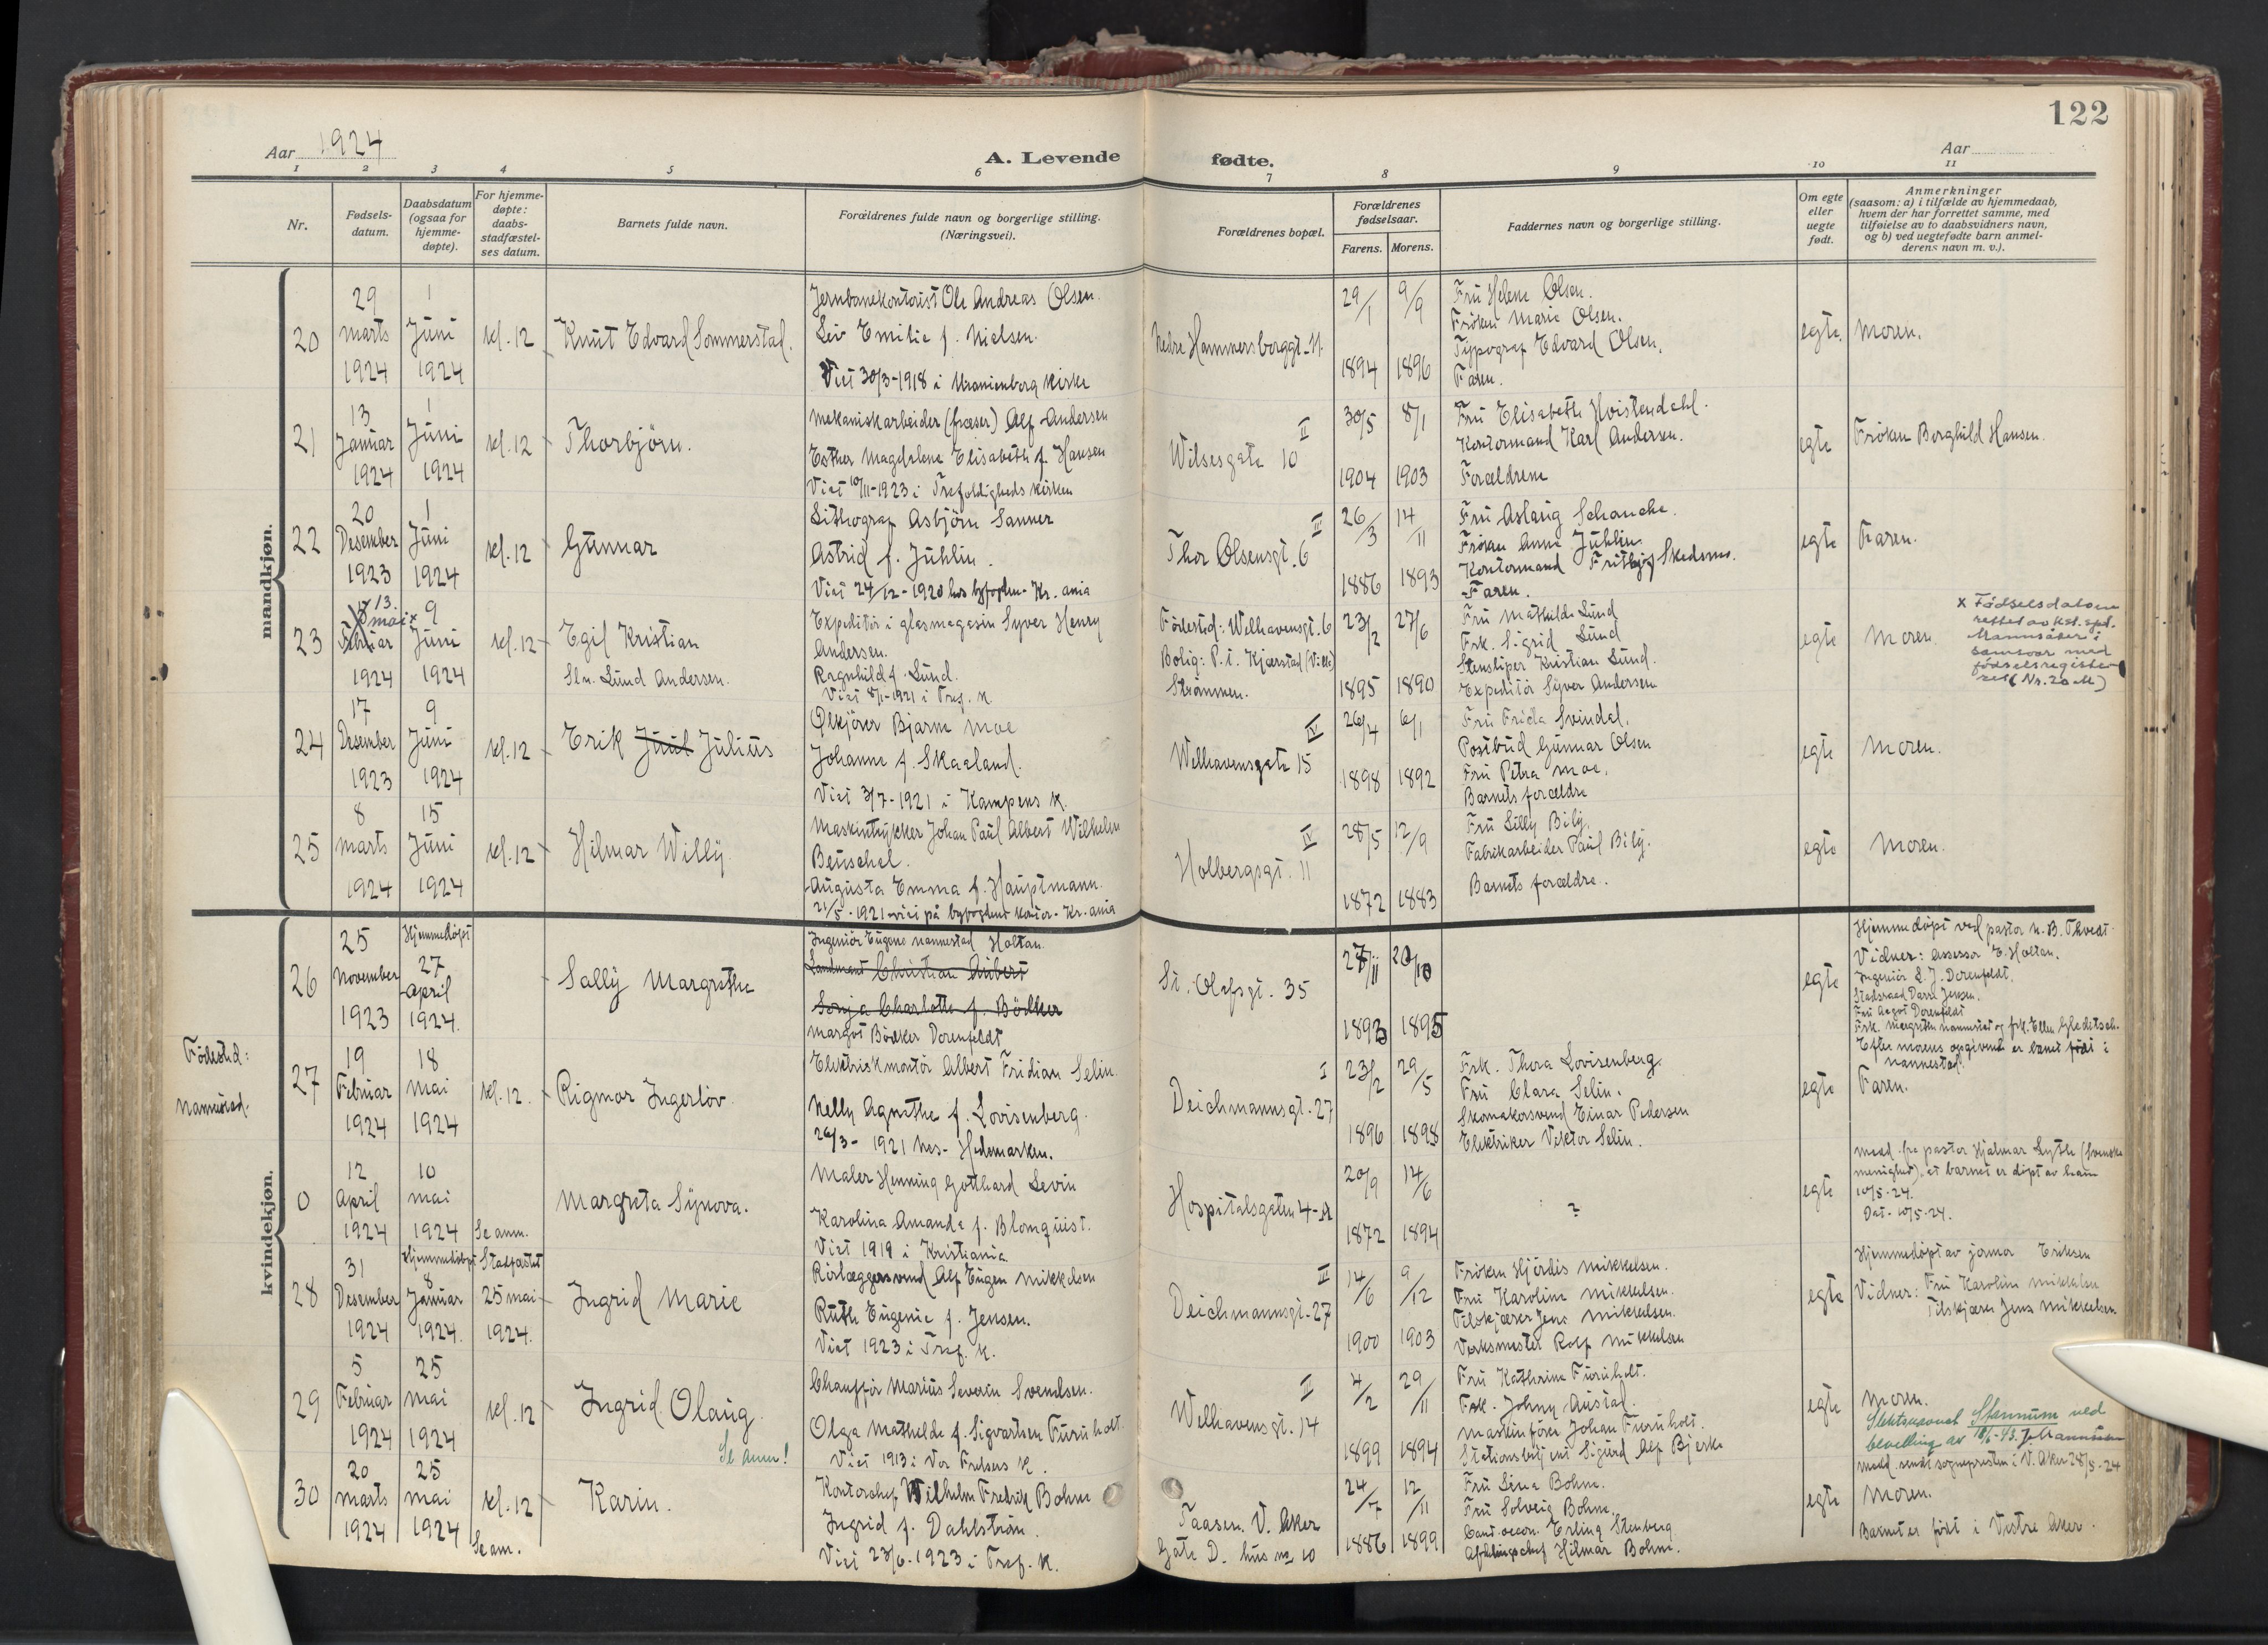 122
Aar 1924
A. Levende fødte.
Aar
1 2 3 4 5 6 7 8 9 10 11
Nr.
Fødsels-
datum.
Daabsdatum
(ogsaa for
hjemme-
døpte).
For hjemme-
døpte:
daabs-
stadfæstel-
ses datum.
Barnets fulde navn.
Forældrenes fulde navn og borgerlige stilling.
(Næringsvei).
Forældrenes bopæl.
Forældrenes
fødselsaar.
Farens. Morens.
Faddernes navn og borgerlige stilling.
Om egte
eller
uegte
født.
Anmerkninger
(saasom: a) i tilfælde av hjemmedaab,
hvem der har forrettet samme, med
tilføielse av to daabsvidners navn,
og b) ved uegtefødte barn anmel-
derens navn m. v.).
mandkjøn.
20
29
marts
1924
1
Juni
1924
kl. 12
Knut Edvard Sommerstad.
Jernbanekontorist Ole Andreas Olsen.
Liv Emilie f. Nielsen.
Viet 30/3-1918 i Uranienborg kirke
Nedre Hammersborggt. 11
29/1 9/9
1894 1896
Fru Helene Olsen.
Frøken Marie Olsen.
Typograf Edvard Olsen.
Faren.
egte.
Moren.
21
13
Januar
1924
1
Juni
1924
kl. 12
Thorbjørn.
Mekanisk arbeider (fræser) Alf Andersen
Esther Magdalene Elisabeth f. Hansen
Viet 10/11-1923 i Trefoldigheds kirken
II
Wilsesgate 10
30/5 8/1
1904 1903
Fru Elisabeth Hvistendahl.
Kontormand Karl Andersen.
Forældrene
egte
Frøken Borghild Hansen.
22
20
Desember
1923
1
Juni
1924
kl. 12
Gunnar
Lithograf Asbjørn Sanner
Astrid f. Juhlin.
Viet 24/12-1920 hos byfogden Kr.ania
III
Thor Olsensgt. 6
26/3 14/11
1886 1893
Fru Aslaug Schancke.
Frøken Anna Juhlin.
Kontormand Fritjof Skedsmo.
Faren.
egte
Faren.
23
13.
mai x
Februar
1924
9
Juni
1924
kl. 12
Egil Kristian
Sln. Lund Andersen.
Expeditør i glasmagasin Syver Henry
Andersen.
Ragnhild f. Lund.
Viet 8/1-1921 i Tref. k.
Fødested: Welhavensgt. 6
Bolig: P. t. Kjærstad (Villa)
Strømmen.
23/2 27/6
1895 1890
Fru Mathilde Lund
Frk. Sigrid Lund
Stensliper Kristian Lund.
Expeditør Syver Andersen
egte
Moren
x Fødselsdatoen
rettet av kst. spr.
Mannsåker i
samsvar med
fødselsregiste-
ret (Nr. 20 M)
24
17
Desember
1923
9
Juni
1924
kl. 12
Erik Juul Julius
Ølkjører Bjarne Moe
Johanne f. Skaaland.
Viet 3/7-1921 i Kampens k.
IV
Welhavensgate 15
26/4 6/1
1898 1892
Fru Frida Svindal.
Postbud Gunnar Olsen
Fru Petra Moe.
Barnets forældre
egte
Moren.
25
8
Marts
1924
15
Juni
1924
kl. 12
Hilmar Willy
Maskintrykker Johan Paul Albert Wilhelm
Beuschel.
Augusta Emma f. Hauptmann.
21/5-1921 viet på byfogdens kontor. Kr.ania
IV
Holbergsgt. 11
28/5 12/9
1872 1883
Fru Lilly Bily.
Fabrikarbeider Paul Bily.
Barnets forældre.
egte
Moren.
kvindekjøn.
Fødested:
Nannestad.
26
25
November
1923
Hjemmedøpt
27
April
1924.
Sally Margrethe
Ingeniør Eugene Nannestad Holtan.
Landmand Christian Aubert
Sonja Charlotte f. Bödker
Margot Bödker Dorenfeldt
St. Olafsgt. 35
27/11 20/10
1893 1895
egte
Hjemmedøpt ved pastor N. B. Thvedt.
Vidner: Assessor E. Holtan.
Ingeniør L. J. Dorenfeldt.
Statsraad Darre Jensen.
Fru Aagot Dorenfeldt
Frk. Margrethe Nannestad og frk. Ellen Gleditsch.
Efter morens opgivende er barnet født i
Nannestad.
27
19
Februar
1924
18
Mai
1924
kl. 12.
Rigmor Ingerlöv.
Elektriskmontør Albert Fridian Selin.
Nelly Agnethe f. Lovisenberg.
26/3-1921 Nes. Hedemarken.
I
Deichmannsgt. 27
23/2 29/5
1896 1898
Frk. Thora Lovisenberg.
Fru Clara Selin.
Skomakersvend Einar Pedersen
Elektriker Viktor Selin.
egte
Faren.
0
12
April
1924
10
mai
1924
Se anm.
Margreta Synova.
Maler Henning Gotthard Levin
Karolina Amanda f. Blomquist.
Viet 1919 i Kristiania
Hospitalsgaten 4-A
20/9 14/6
1872 1894
?
egte
Medd. fra pastor Hjalmar Lythe (svenske
menighet), at barnet er døpt av ham
10/5-24.
Dat. 10/5-24.
28
31
Desember
1924
Hjemmedøpt
8
Januar
1924.
Stadfæstet
25 mai
1924.
Ingrid Marie
Rørlæggersvend Alf Eugen Mikkelsen
Ruth Eugenie f. Jensen.
Viet 1923 i Tref. k.
II
Deichmannsgt. 27
14/6 9/12
1900 1903
Frøken Hjørdis Mikkelsen.
Fru Karoline Mikkelsen.
Tilskjærer Jens Mikkelsen.
Verksmester Rolf Mikkelsen
egte
Hjemmedøpt av jormor Eriksen
Vidner: Fru Karoline Mikkelsen
Tilskjærer Jens Mikkelsen
29
5
Februar
1924
25
mai
1924
kl. 12
Ingrid Olaug.
Se anm!
Chauffør Marius Severin Svendsen.
Olga Mathilde f. Sigvartsen Furuholt.
Viet 1913 i Vor Frelsers k.
II
Welhavensgt. 14
4/2 29/11
1899 1894
Fru Kathrine Furuholt.
Frk. Johny Austad.
Maskinfører Johan Furuholt.
Stationsbetjent Sigurd Alf Bjerke
egte
Moren.
Slektsnavnet Stennum ved
bevilling av 18/6-43. J. Mannsåker
30
20
Marts
1924
25
mai
1924
kl. 12
Se am.
Karin.
Kontorchef Wilhelm Fredrik Bohne
Ingrid f. Dahlstrøm.
Viet 23/6-1923 i Tref. k.
Taasen. V. Aker
Gate D. hus no 10
24/7 12/11
1886 1899
Fru Lina Bohne.
Fru Solveig Bohne.
Cand. oecon. Erling Stenberg.
Afdelingschef Hilmar Bohne.
egte
Medd. sendt sognepresten i V. Aker 28/5-24
Moren.
Barnet er født i Vestre Aker.